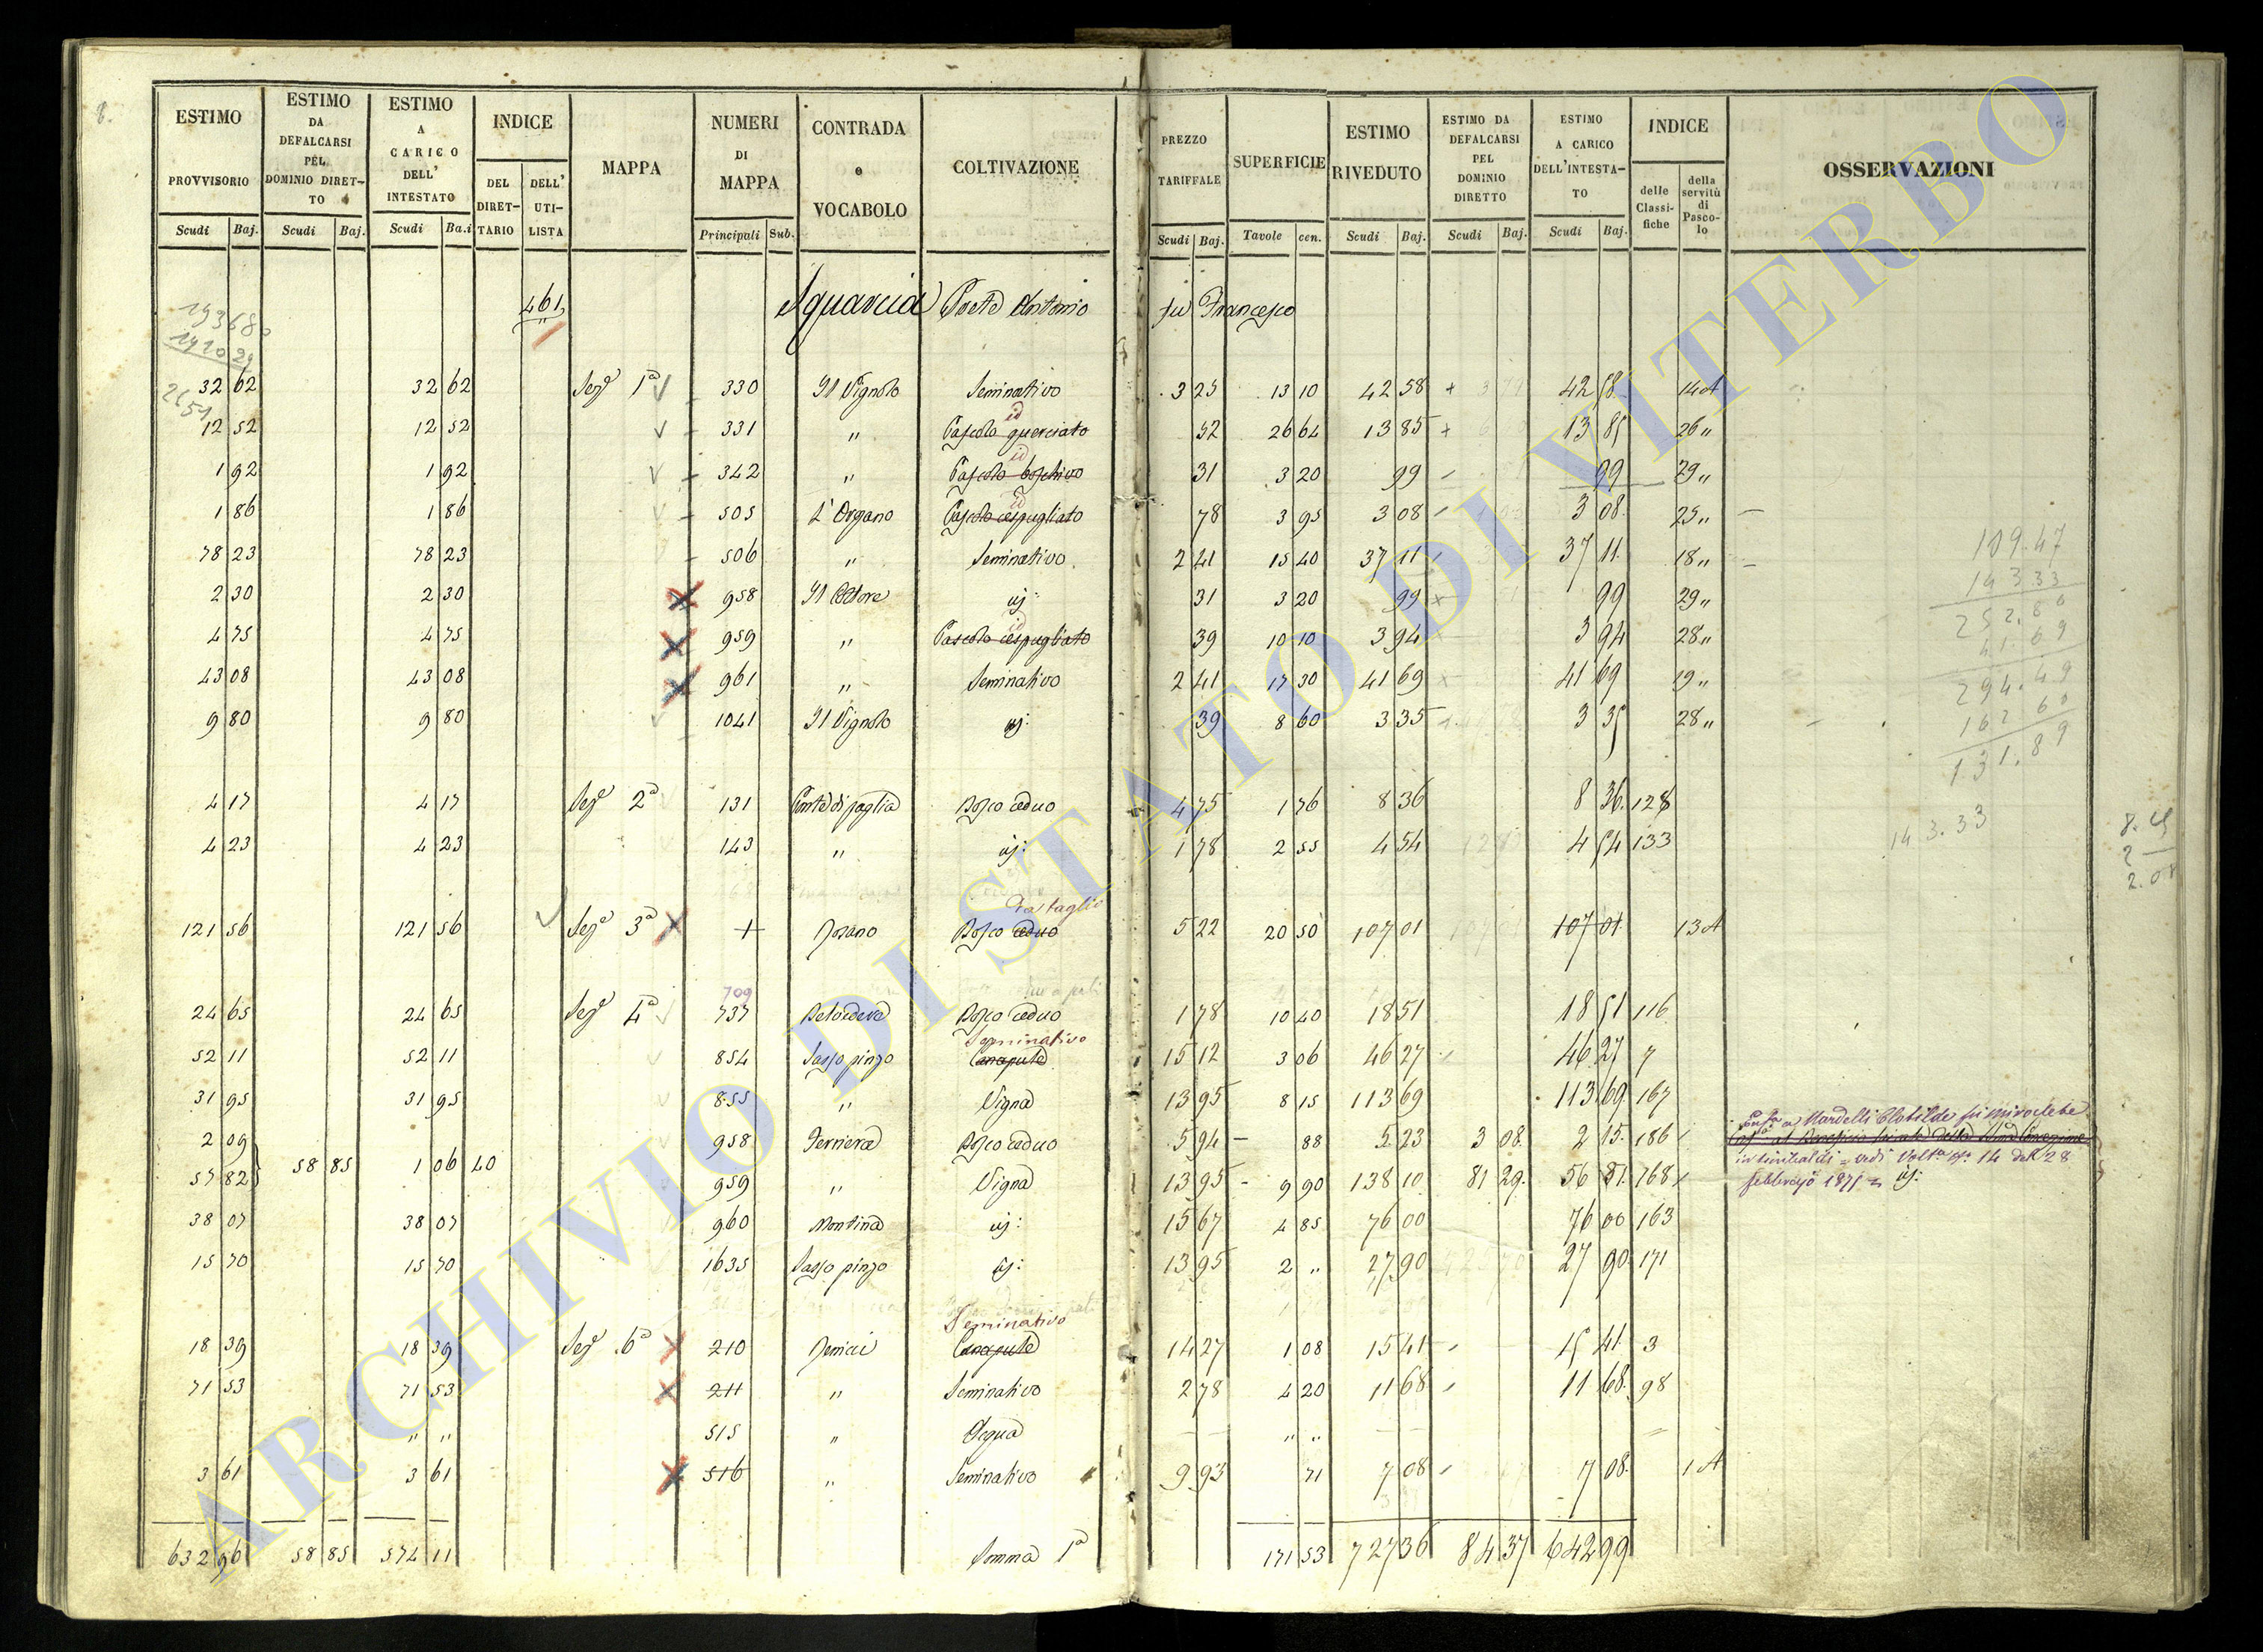 8.
ESTIMO PROVVISORIO Scudi Baj.
ESTIMO DA DEFALCARSI PEL DOMINIO DIRET-TO Scudi Baj.
ESTIMO A CARICO DELL' INTESTATO Scudi Ba.i
INDICE DEL DIRET-TARIO DELL' UTI-LISTA
MAPPA
NUMERI DI MAPPA Principali Sub.
CONTRADA e VOCABOLO
COLTIVAZIONE
PREZZO TARIFFALE Scudi Baj.
SUPERFICIE Tavole cen.
ESTIMO RIVEDUTO Scudi Baj.
ESTIMO DA DEFALCARSI PEL DOMINIO DIRETTO Scudi Baj.
ESTIMO A CARICO DELL'INTESTA-TO Scudi Baj.
INDICE delle Classi-fiche della servitù di Pasco-lo
OSSERVAZIONI
461 Squarcia Prete Antonio fu Francesco
32 62 32 62 Sez.e 1a 330 Il Vignolo Seminativo 3 25 13 10 42 58 42 58 14 A
12 52 12 52 331 " Pascolo querciato id 52 26 64 13 85 13 85 26 "
1 92 1 92 342 " Pascolo boschivo id 31 3 20 99 99 29 "
1 86 1 86 505 L'Organo Pascolo cespugliato id 78 3 95 3 08 3 08 25 "
78 23 78 23 506 " Seminativo 2 41 15 40 37 11 37 11 18 "
2 30 2 30 958 Il 31 3 20 99 99 29 "
4 75 4 75 959 " Pascolo cespugliato id 39 10 10 3 94 3 94 28 "
43 08 43 08 961 " Seminativo 2 41 17 30 41 69 41 69 19 "
9 80 9 80 1041 Il Vignolo 39 8 60 3 35 3 35 28 "
4 17 4 17 Sez.e 2a 131 Ponte di paglia Bosco ceduo 4 75 1 76 8 36 8 36 128
4 23 4 23 143 " 1 78 2 55 4 54 4 54 133
121 56 121 56 Sez.e 3a 1 Bosco ceduo Da taglio 5 22 20 50 107 01 107 01 13 A
24 65 24 65 Sez.e 4a 709 737 Belvedere Bosco ceduo 1 78 10 40 18 51 18 51 116
52 11 52 11 854 Sasso pinzo Canapule Seminativo 15 12 3 06 46 27 46 27 7
31 95 31 95 855 " Vigna 13 95 8 15 113 69 113 69 167
2 09 958 Ferriera Bosco ceduo 5 94 88 5 23 3 08 2 15 186
57 82 58 85 1 06 40 959 " Vigna 13 95 9 90 138 10 81 29 56 81 168
Mardelli Clotilde
vedi Volt.a N.o 14 del 28
febbrajo 1871
38 07 38 07 960 Montina 15 67 4 85 76 00 76 00 163
15 70 15 70 1635 Sasso pinzo 13 95 2 " 27 90 27 90 171
18 39 18 39 Sez.e 6a 210 Canapule Seminativo 14 27 1 08 15 41 15 41 3
71 53 71 53 211 " Seminativo 2 78 4 20 11 68 11 68 98
" " 515 " Acqua " "
3 61 3 61 516 " Seminativo 9 93 71 7 08 7 08 1 A
632 96 58 85 574 11 Somma 1a 171 53 727 36 84 37 642 99
109.47
143.33
252.80
41.69
294.49
162 60
131.89
143.33
ARCHIVIO DI STATO DI VITERBO